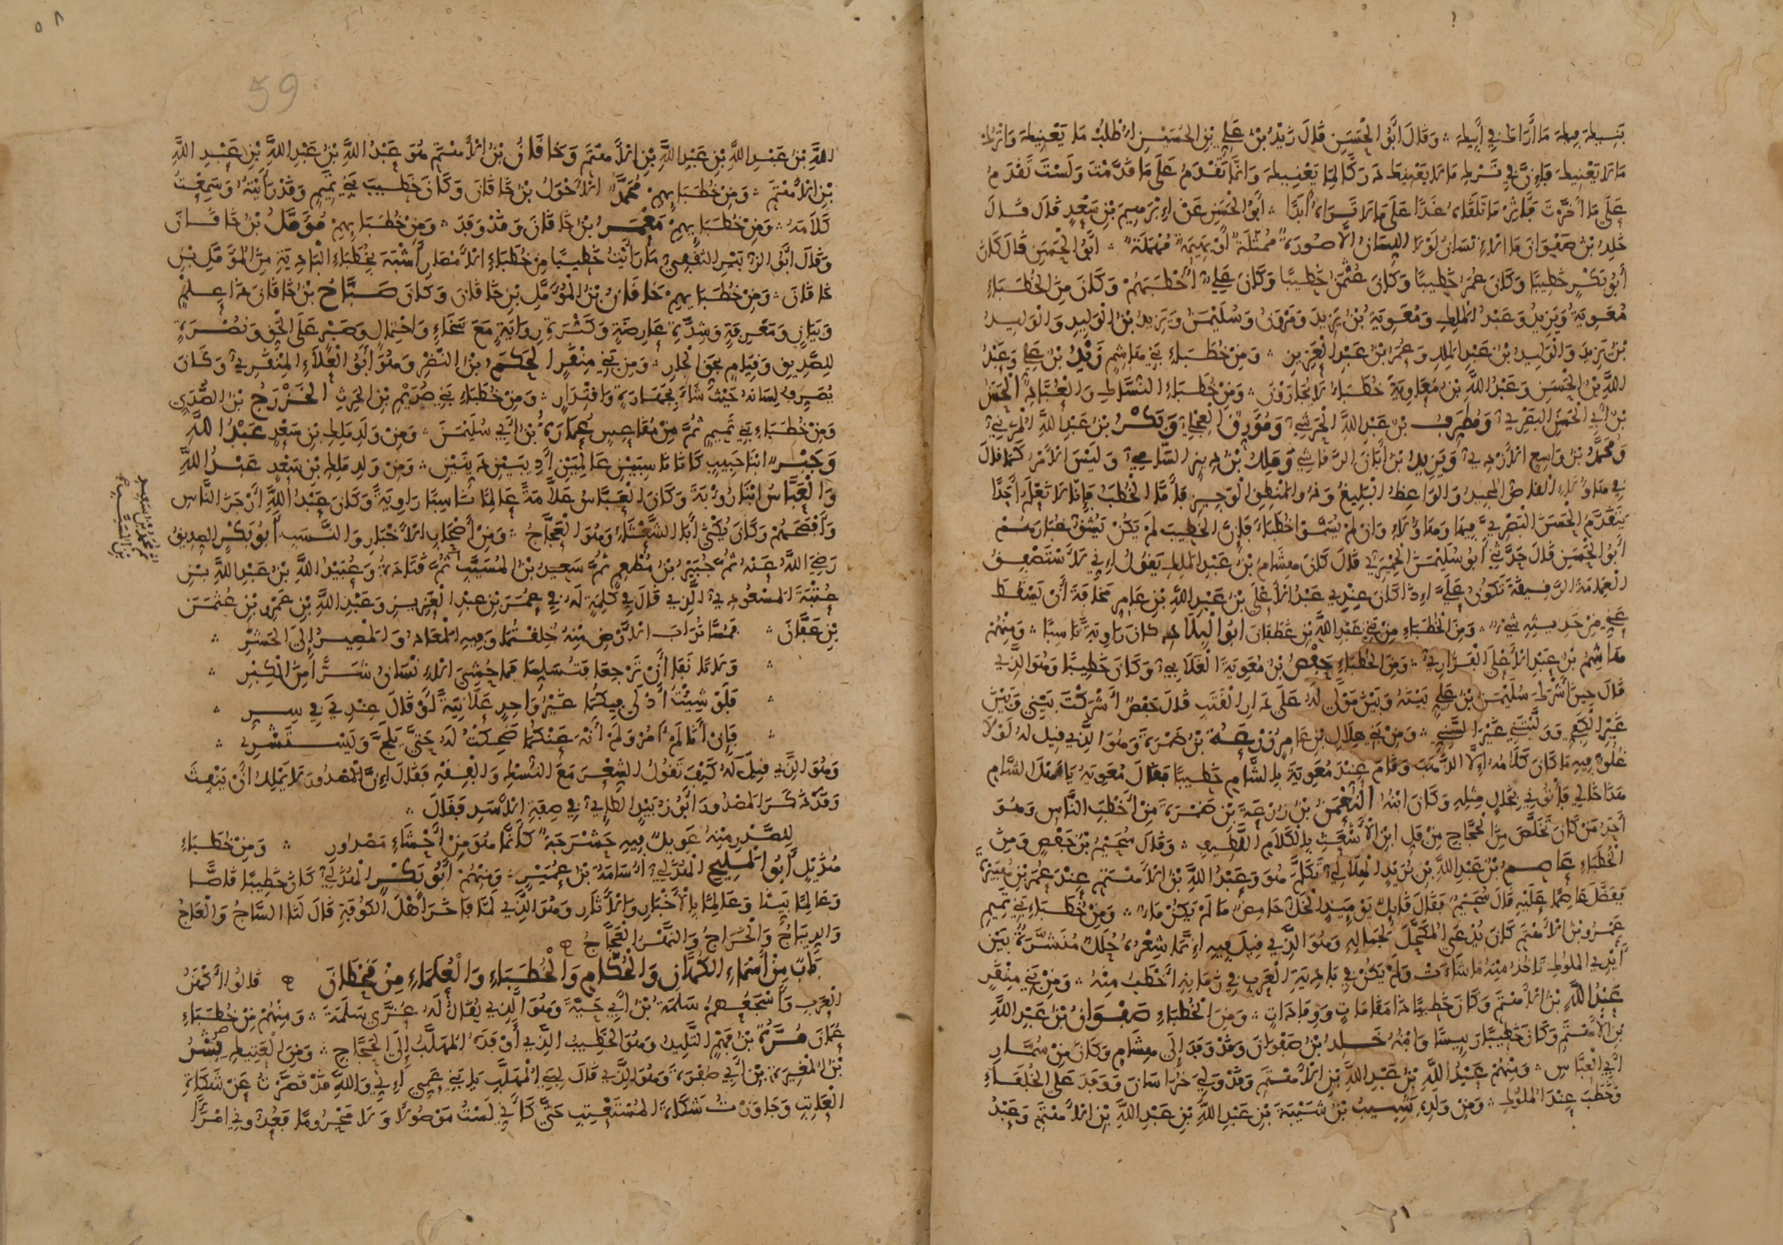 بنيك ما أراك في أبيك ۞ وقال أبو الحسن قال زيد بن علي بن الحسين اطلب ما يعنيك واترك
ما لا يعنيك فإن في ترك ما لا يعنيك دركا لما يعنيك وإنما تقدم على ما قدمت ولست تقدم
على ما أخرت فآثر ما تلقاه غدا على ما لا تراه أبدا ۞ أبو الحسن عن إبرهيم بن سعد قال قال
خلد بن صفوان ما الإنسان لولا اللسان إلا صورة ممثلة أو بهيمة مهملة ۞ أبو الحسن قال كان
أبو بكر خطيبا وكان عمر خطيبا وكان عثمن خطيبا وكان علي أخطبهم وكان من الخطباء
معوية ويزيد وعبد الملك ومعوية بن يزيد ومروان وسليمن ويزيد بن الوليد والوليد
بن يزيد والوليد بن عبد الملك وعمر بن عبد العزيز ۞ ومن خطباء بني هاشم زيد بن علي وعبد
الله بن الحسن وعبد الله بن معاوية خطباء لا يجارون ۞ ومن خطباء النساك والعباد الحسن
بن أبي الحسن البصري ومطرف بن عبد الله الحرشي ومورق العجلي وبكر بن عبد الله المزني
ومحمد بن واسع الأزدي ويزيد بن أبان الرقاشي وملك بن دينار السامي وليس الأمر كما قال
في هاولاء القاص المجيد والواعظ البليغ وذو المنطق الوجيز فأما الخطب فإنا لا نعلم أحدا
يتقدم الحسن البصري فيها وهاولاء وإن لم يسموا خطباء فإن الخطيب لم يكن يشق غبارهم
أبو الحسن قال حدثني أبو سليمن الحميري قال كان هشام بن عبد الملك يقول إني لأستصفق
العمامة الرقيقة تكون على أذني إذا كان عندي عبد الأعلى بن عبد الله بن عامر مخافة أن يسقط
عني من حديثه شيء ۞ ومن الخطباء من بني عبد الله بن غطفان أبو البلاد كان راوية ناسبا ۞ ومنهم
هاشم بن عبد الأعلى الفزاري ۞ ومن الخطباء حفص بن معوية الغلابي وكان خطيبا وهو الذي
قال حين أشرك سليمن بن علي بينه وبين مولى له على دار القتب قال حفص أشركت بيني وبين
غير الكفي ووليتني غير السني ۞ ومن بني هلال بن عامر زرعة بن ضمرة وهو الذي قيل له لولا
غلو فيه ما كان كلامه إلا الذهب وقام عند معوية بالشام خطيبا فقال معوية يا أهل الشام
هذا خالي فأتوني بخال مثله وكان ابنه النعمن بن زرعة بن ضمرة من أخطب الناس وهو
أحد من كان تخلص من الحجاج من فل ابن الأشعث بالكلام اللطيف ۞ وقال سحيم بن حفص ومن
الخطباء عاصم بن عبد الله بن يزيد الهلالي تكلم هو وعبد الله بن الأهتم عند عمر بن هبيرة
ففضل عاصما عليه قال سحيم فقال قايل يومئذ الخل حامض ما لم يكن ماء ۞ ومن خطباء بني تميم
عمرو بن الأهتم كان يدعى المكحل لجماله وهو الذي قيل فيه إنما شعره حلل منشرة بين
أيدي الملوك تأخذ منه ما شاءت ولم يكن في بادية العرب في زمانه أخطب منه ۞ ومن بني منقر
عبد الله بن الأهتم وكان خطيبا ذا مقامات ووفادات ۞ ومن الخطباء صفوان بن عبد الله
بن الأهتم وكان خطيبا رييسا وابنه خلد بن صفوان وقد وفد إلى هشام وكان من سمار
أبي العباس ۞ ومنهم عبد الله بن عبد الله بن الأهتم وقد ولي خراسان ووفد على الخلفاء
وخطب عند الملوك ۞ ومن ولده شبيب بن شيبة بن عبد الله بن عبد الله بن الأهتم وعبد
٥٨
59
الله بن عبد الله بن عبد الله بن الأهتم وخاقان بن الأهتم هو عبد الله بن عبد الله بن عبد الله
بن الأهتم ۞ ومن خطبايهم محمد الأحول بن خاقان وكان خطيب بني تميم وقد رأيته وسمعت
كلامه ۞ ومن خطبايهم معمر بن خاقان وقد وفد ۞ ومن خطبايهم مؤمل بن خاقان
وقال أبو الزبير الثقفي ما رأيت خطيبا من خطباء الأمصار أشبه بخطباء البادية من المؤمل بن
خاقان ۞ ومن خطبايهم خاقان بن المؤمل بن خاقان وكان صباح بن خاقان ذا علم
وبيان ومعرفة وشدة عارضة وكثرة رواية مع سخاء واحتمال وصبر على الحق ونصرة
للصديق وقيام بحق الجار ۞ ومن بني منقر الحكم بن النضر وهو أبو العلاء المنقري وكان
يصرف لسانه حيث شاء بجهارة واقتدار ۞ ومن خطباء بني صريم بن الحرث الخزرج بن الصدي
ومن خطباء بني تميم ثم من مقاعس عمارة بن أبي سليمن ۞ ومن ولد ملك بن سعد عبد الله
وجبر ابنا حبيب كانا ناسبين عالمين أديبين دينين ۞ ومن ولد ملك بن سعد عبد الله
والعباس ابنا رؤبة وكان العباس علامة عالما ناسبا راوية وكان عبد الله أرجز الناس
وأفصحهم وكان يكنى أبا الشعثاء وهو العجاج ۞ ومن أصحاب الأخبار والنسب أبو بكر الصديق
رضي الله عنه ثم جبير بن مطعم ثم سعيد بن المسيب ثم قتادة وعبيد الله بن عبد الله بن
عتبة المسعودي الذي قال في كلمة له في عمر بن عبد العزيز وعبد الله بن عمرو بن عثمن
بن عفان ۞ فمسا تراب الأرض منه خلقتما وفيه المعاد والمصير إلى الحشر ۞
۞ ولا تأنفا أن ترجعا فتسلما فما حشي الإنسان شرا من الكبر ۞
۞ فلو شئت أدلى فيكما غير واحد علانية أو قال عندي في سر ۞
۞ فإن أنا لم آمر ولم أنه عنكما ضحكت له حتى يلج ويستشري ۞
وهو الذي قيل له كيف تقول الشعر مع النسك والفقه فقال إن المصدور لا يملك أن ينفث
وقد ذكر المصدور أبو زبيد الطايي في صفة الأسد فقال ۞
للصدر منه عويل فيه حشرجة كأنما هو من أحشاء مصدور ۞ ومن خطباء
هذيل أبو المليح الهذلي أسامة بن عمير ۞ ومنهم أبو بكر الهذلي كان خطيبا قاصا
وعالما بينا وعالما بالأخبار والآثار وهو الذي لما فاخر أهل الكوفة قال لنا الساج والعاج
والديباج والخراج والنهر العجاج ۞
باب من أسماء الكهان والحكام والخطباء والعلماء من قحطان ۞ قالوا أكهن
العرب وأسجعهم سلمة بن أبي حية وهو الذي يقال له عزى سلمة ۞ ومنهم من خطباء
عمان مرة بن فهم التليد وهو الخطيب الذي أوفده المهلب إلى الحجاج ۞ ومن العتيك بشر
بن المغيرة بن أبي صفرة وهو الذي قال لبني المهلب يا بني عمي إني والله قد قصرت عن شكاة
العاتب وجاوزت شكاة المستعتب حتى كأني لست موصولا ولا محروما فعدوني امرأ